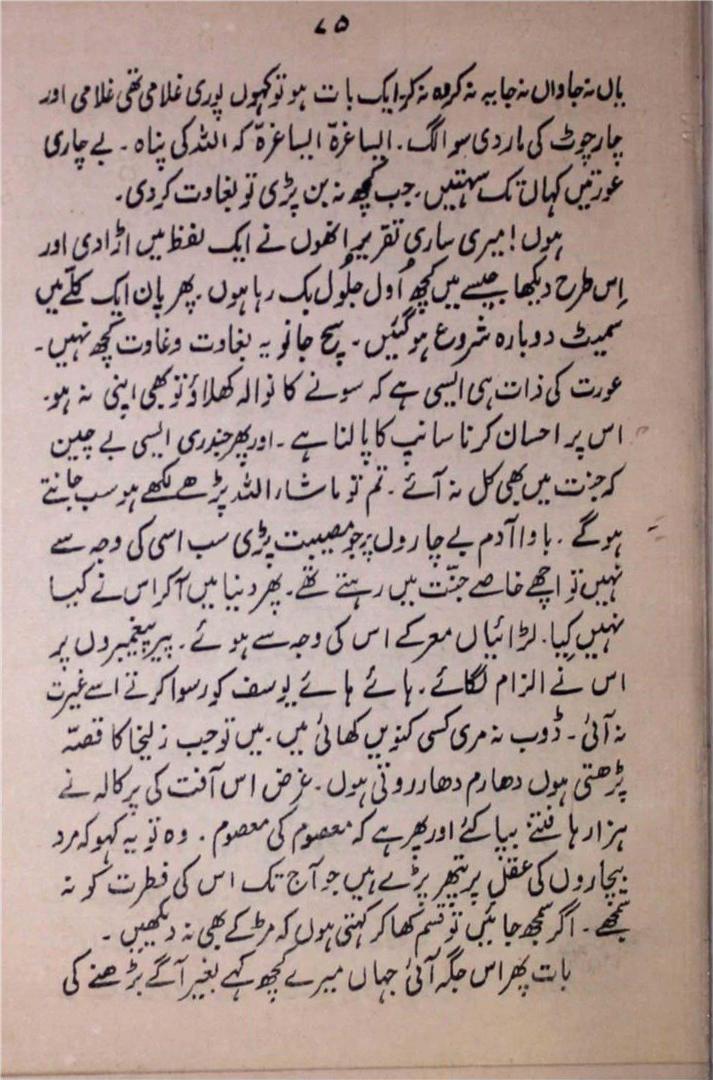 ۷۵
یاں نہ جاواں نہ جا یہ نہ کر وہ نہ کر۔ ایک بات ہو تو کہوں پوری غلامی تھی غلامی اور
چار چوٹ کی مار دی سو الگ۔ ایسا غرّہ ایسا غرّہ کہ اللہ کی پناہ۔ بے چاری
عورتیں کہاں تک سہتیں۔ جب کچھ نہ بن پڑی تو بغاوت کر دی۔
ہوں! میری ساری تقریر انھوں نے ایک لفظ میں اڑا دی اور
اِس طرح دیکھا جیسے میں کچھ اُول جلُول بک رہا ہوں۔ پھر پان ایک کلّے میں
سمیٹ دوبارہ شروع ہو گئیں۔ سچ جانو یہ بغاوت وغاوت کچھ نہیں۔
عورت کی ذات ہی ایسی ہے کہ سونے کا نوالہ کھلاؤ تو بھی اپنی نہ ہو۔
اس پر احسان کرنا سانپ کا پالنا ہے۔ اور پھر چندری ایسی بے چین
کہ جنت میں بھی کل نہ آئے۔ تم تو ماشاء اللہ پڑھے لکھے ہو سب جانتے
ہوگے۔ باوا آدم بے چاروں پر جو مصیبت پڑی سب اسی کی وجہ سے
نہیں تو اچھے خاصے جنّت میں رہتے تھے۔ پھر دنیا میں آ کر اس نے کیا
نہیں کِیا۔ لڑائیاں معرکے اس کی وجہ سے ہوئے۔ پیر پیغمبروں پر
اس نے الزام لگائے۔ ہائے ہائے یوسف کو رسوا کرتے اسے غیرت
نہ آئی۔ ڈوب نہ مری کسی کنویں کھائی میں۔ میں تو جب زلیخا کا قصّہ
پڑھتی ہوں دھارم دھار روتی ہوں۔ غرض اس آفت کی پرکالہ نے
ہزارہا فتنے بپا کئے اور پھر ہے کہ معصوم کی معصوم۔ وہ تو یہ کہو کہ مرد
بیچاروں کی عقل پر پتھر پڑے ہیں جو آج تک اس کی فطرت کو نہ
سمجھے۔ اگر سمجھ جائیں تو قسم کھا کر کہتی ہوں کہ مڑ کے بھی نہ دیکھیں۔
بات پھر اس جگہ آئی جہاں میرے کچھ کہے بغیر آگے بڑھنے کی